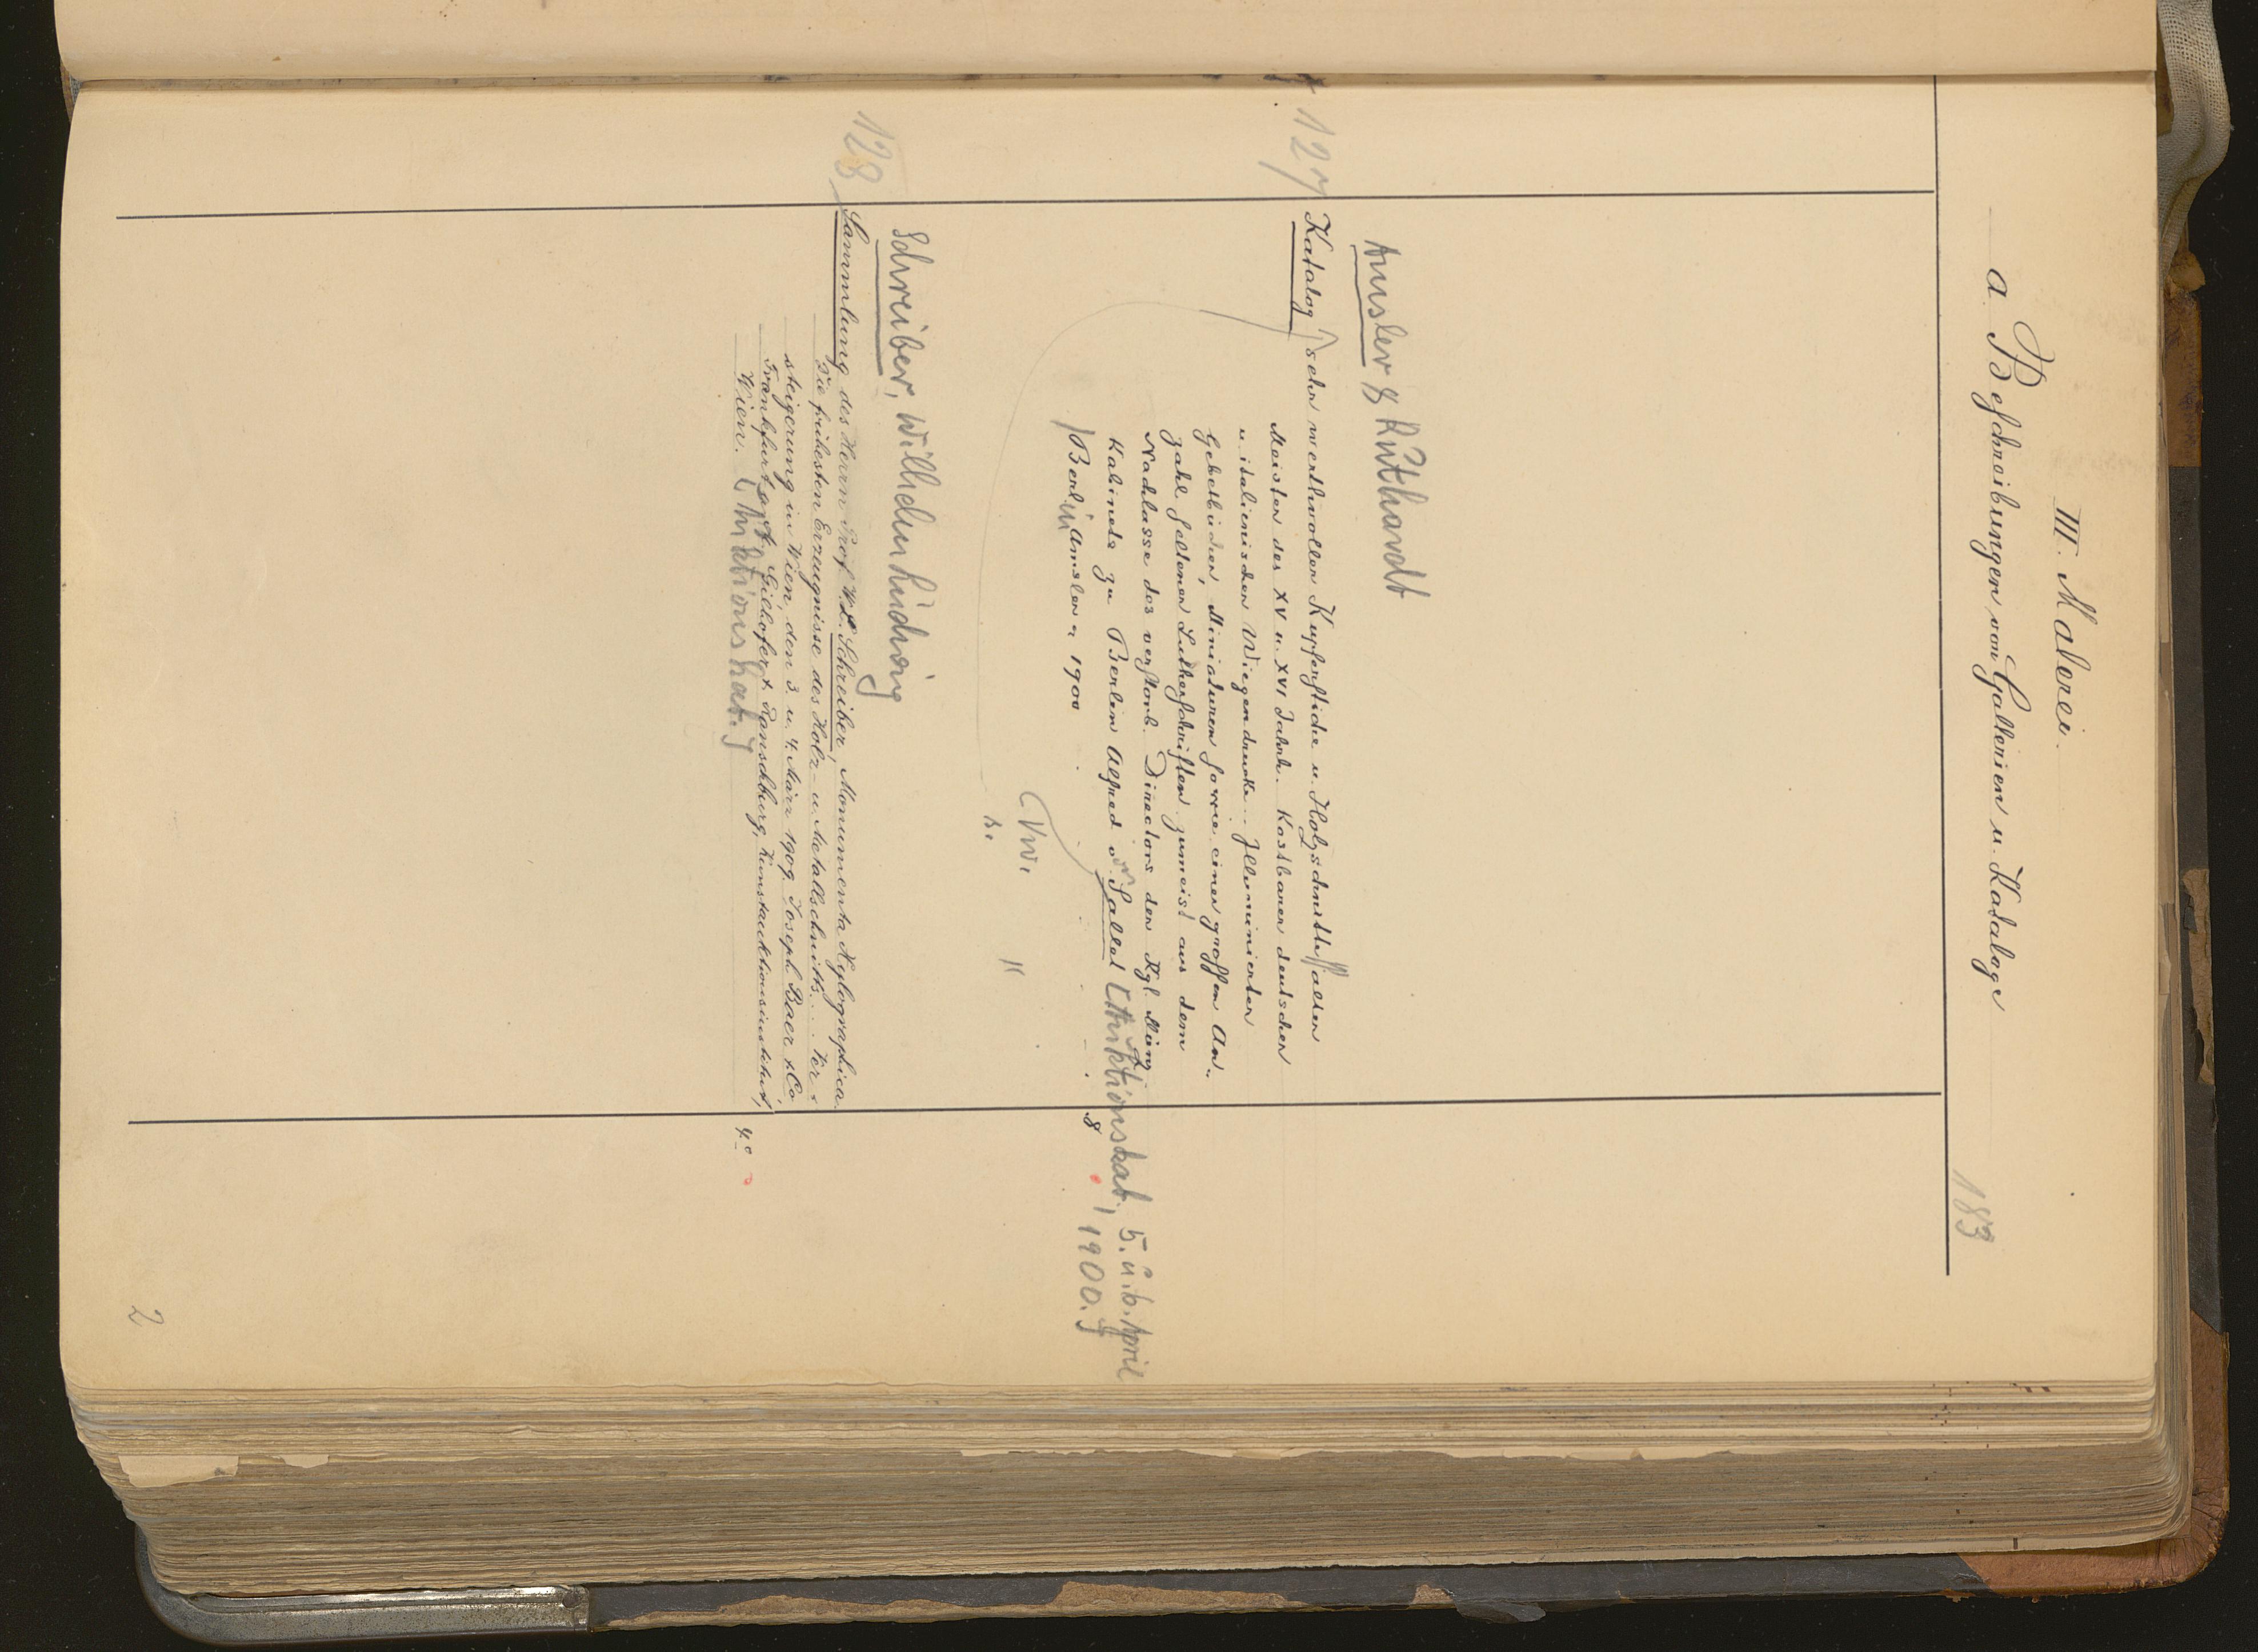 III. Malerei.
a. Beschreibungen von Gallerien u. Kataloge
183
Amsler & Ruthardt
127
Katalog sehr werthvoller Kupferstiche u. Holzschnitte alter
Meister des XV u. XVI Jahrh. Kostbarer deutscher
u. italienischer Wiegendrucke.. Illuminierter
Gebetbücher, Miniaturen sowie einer grossen An-
zahl seltener Lutherschriften zumeist aus dem
Nachlasse des verstorb. Directors der Kgl. Münz
Kabinets zu Berlin Alfred v Sallet [Auktionskat., 5. u. 6. April
Berlin Amsler 1900 8 1900.]
Schreiber, Wilhelm Ludwig
128
Sammlung des Herrn Prof. W. L. Schreiber, Monumenta Xylographica.
Die frühesten Erzeugnisse des Holz- u. Metallschnitts... Ver-
steigerung in Wien, den 3. u. 4. März 1909. Joseph Baer & Co.
Frankfurt a/M. Gilhofer & Ranschburg, Kunstauktionsinstitut,
Wien. [Auktionskat.] 4°
2